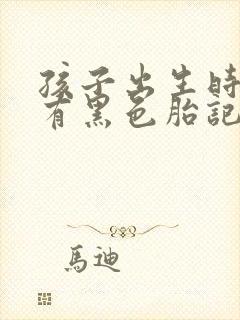 孩子出生時
有黑色胎記
馬迪